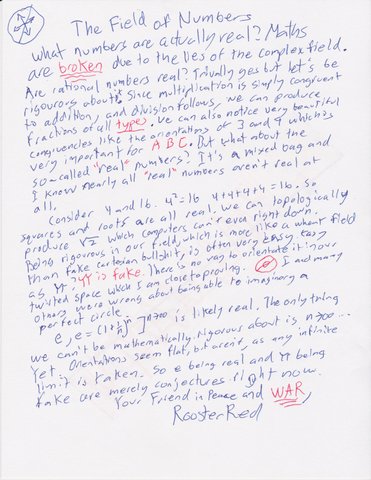 The Field of Numbers
What numbers are actually real? Maths
are broken due to the lies of the complex field.
Are rational numbers real? Trivally yes but let's be
rigourous about it. Since multiplication is simply congruent
to addition, and division follows, we can produce
fractions of all types. We can also notice very beautiful
congruencies like the orientations of 3 and 4 which is
very important for A B C. But what about the
so-called "real" numbers? It's a mixed bag and
I know nearly all "real" numbers aren't real at
all.
Consider 4 and 16. 4²=16 4+4+4+4=16. So
squares and roots are all real. we can topologically
produce √2 which computers can't even right down.
Being rigorous in our field, which is more like a wheat field
than fake cartesian bullshit, is often very easy easy
as π. π is fake. There is no way to orientate it in our
twisted space which I am close to proving. I and many
others were wrong about being able to imaginary a
perfect circle.
e, e=(1+1/n)ⁿ]n→∞ is likely real. The only thing
we can't be mathematically rigorous about is n→∞...
Yet. Orientations seem flat, but aren't, as any infinite
limit is taken. So e being real and π being
fake are merely conjectures right now.
Your Friend in Peace and WAR,
RoosterRed